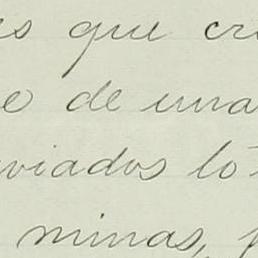 es que cr
e de una
viados lo
minas, p